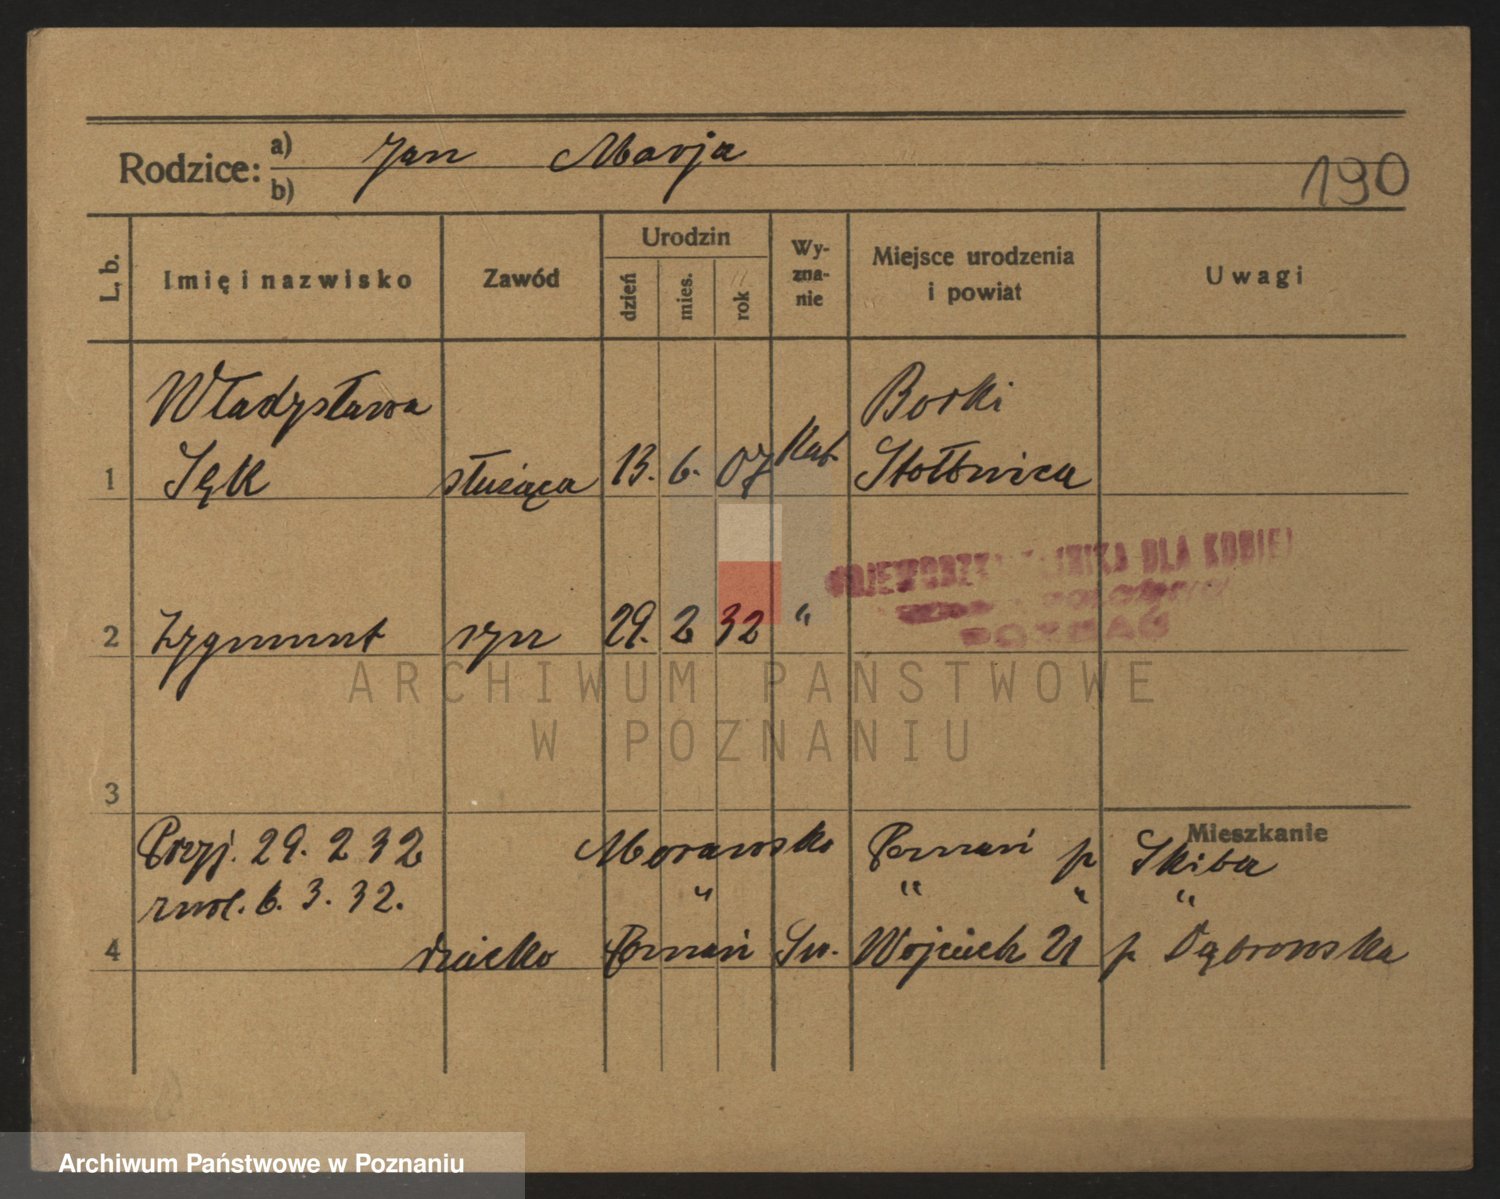 Rodzice: a) Jan Marja
b)
190
L. b.
Imię i nazwisko
Zawód
Urodzin
dzień
mies.
rok
Wy-
zna-
nie
Miejsce urodzenia
i powiat
Uwagi
Władysława
Borki
1 Sęk służąca 13. 6. 07 Kat.
DLA KOBIET
POZNAŃ
2 Zygmunt syn 29. 2 32 "
ARCHIWUM PAŃSTWOWE
W POZNANIU
3
Mieszkanie
Przyj. 29. 2 32 Morawsko Poznań p Skiba
zwol. 6. 3. 32. " " " "
4 dziecko Poznań Św. Wojciech 21 p Dąbrowska
Archiwum Państwowe w Poznaniu